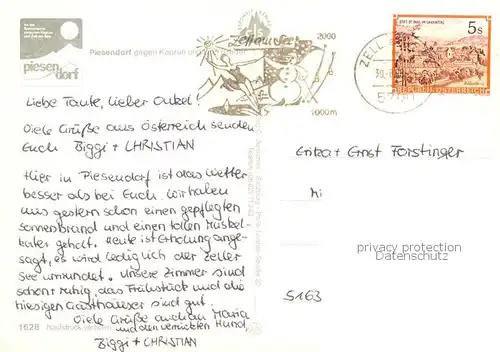 piesen
dorf
Piesendorf gegen Kaprun und
Zell am See
2000
1000m
ZELL
5s
REPUBLIK ÖSTERREICH
Liebe Tante, lieber Onkel!
Viele Grüße aus Österreich senden
Euch Biggi + CHRISTIAN
Hier in Piesendorf ist das Wetter
besser als bei Euch. Wir haben
uns gestern schon einen gepflegten
Sonnenbrand und einen tollen Muskel-
kater geholt. Heute ist Erholung ange-
sagt, es wird lediglich der Zeller
See umrundet. Unsere Zimmer sind
schön ruhig, das Frühstück und die
hiesigen Gasthäuser sind gut.
Viele Grüße auch an Maria
und den verrückten Hund,
Biggi + CHRISTIAN
1628 Nachdruck verboten
Erika + Ernst Forstinger
5163
privacy protection
Datenschutz